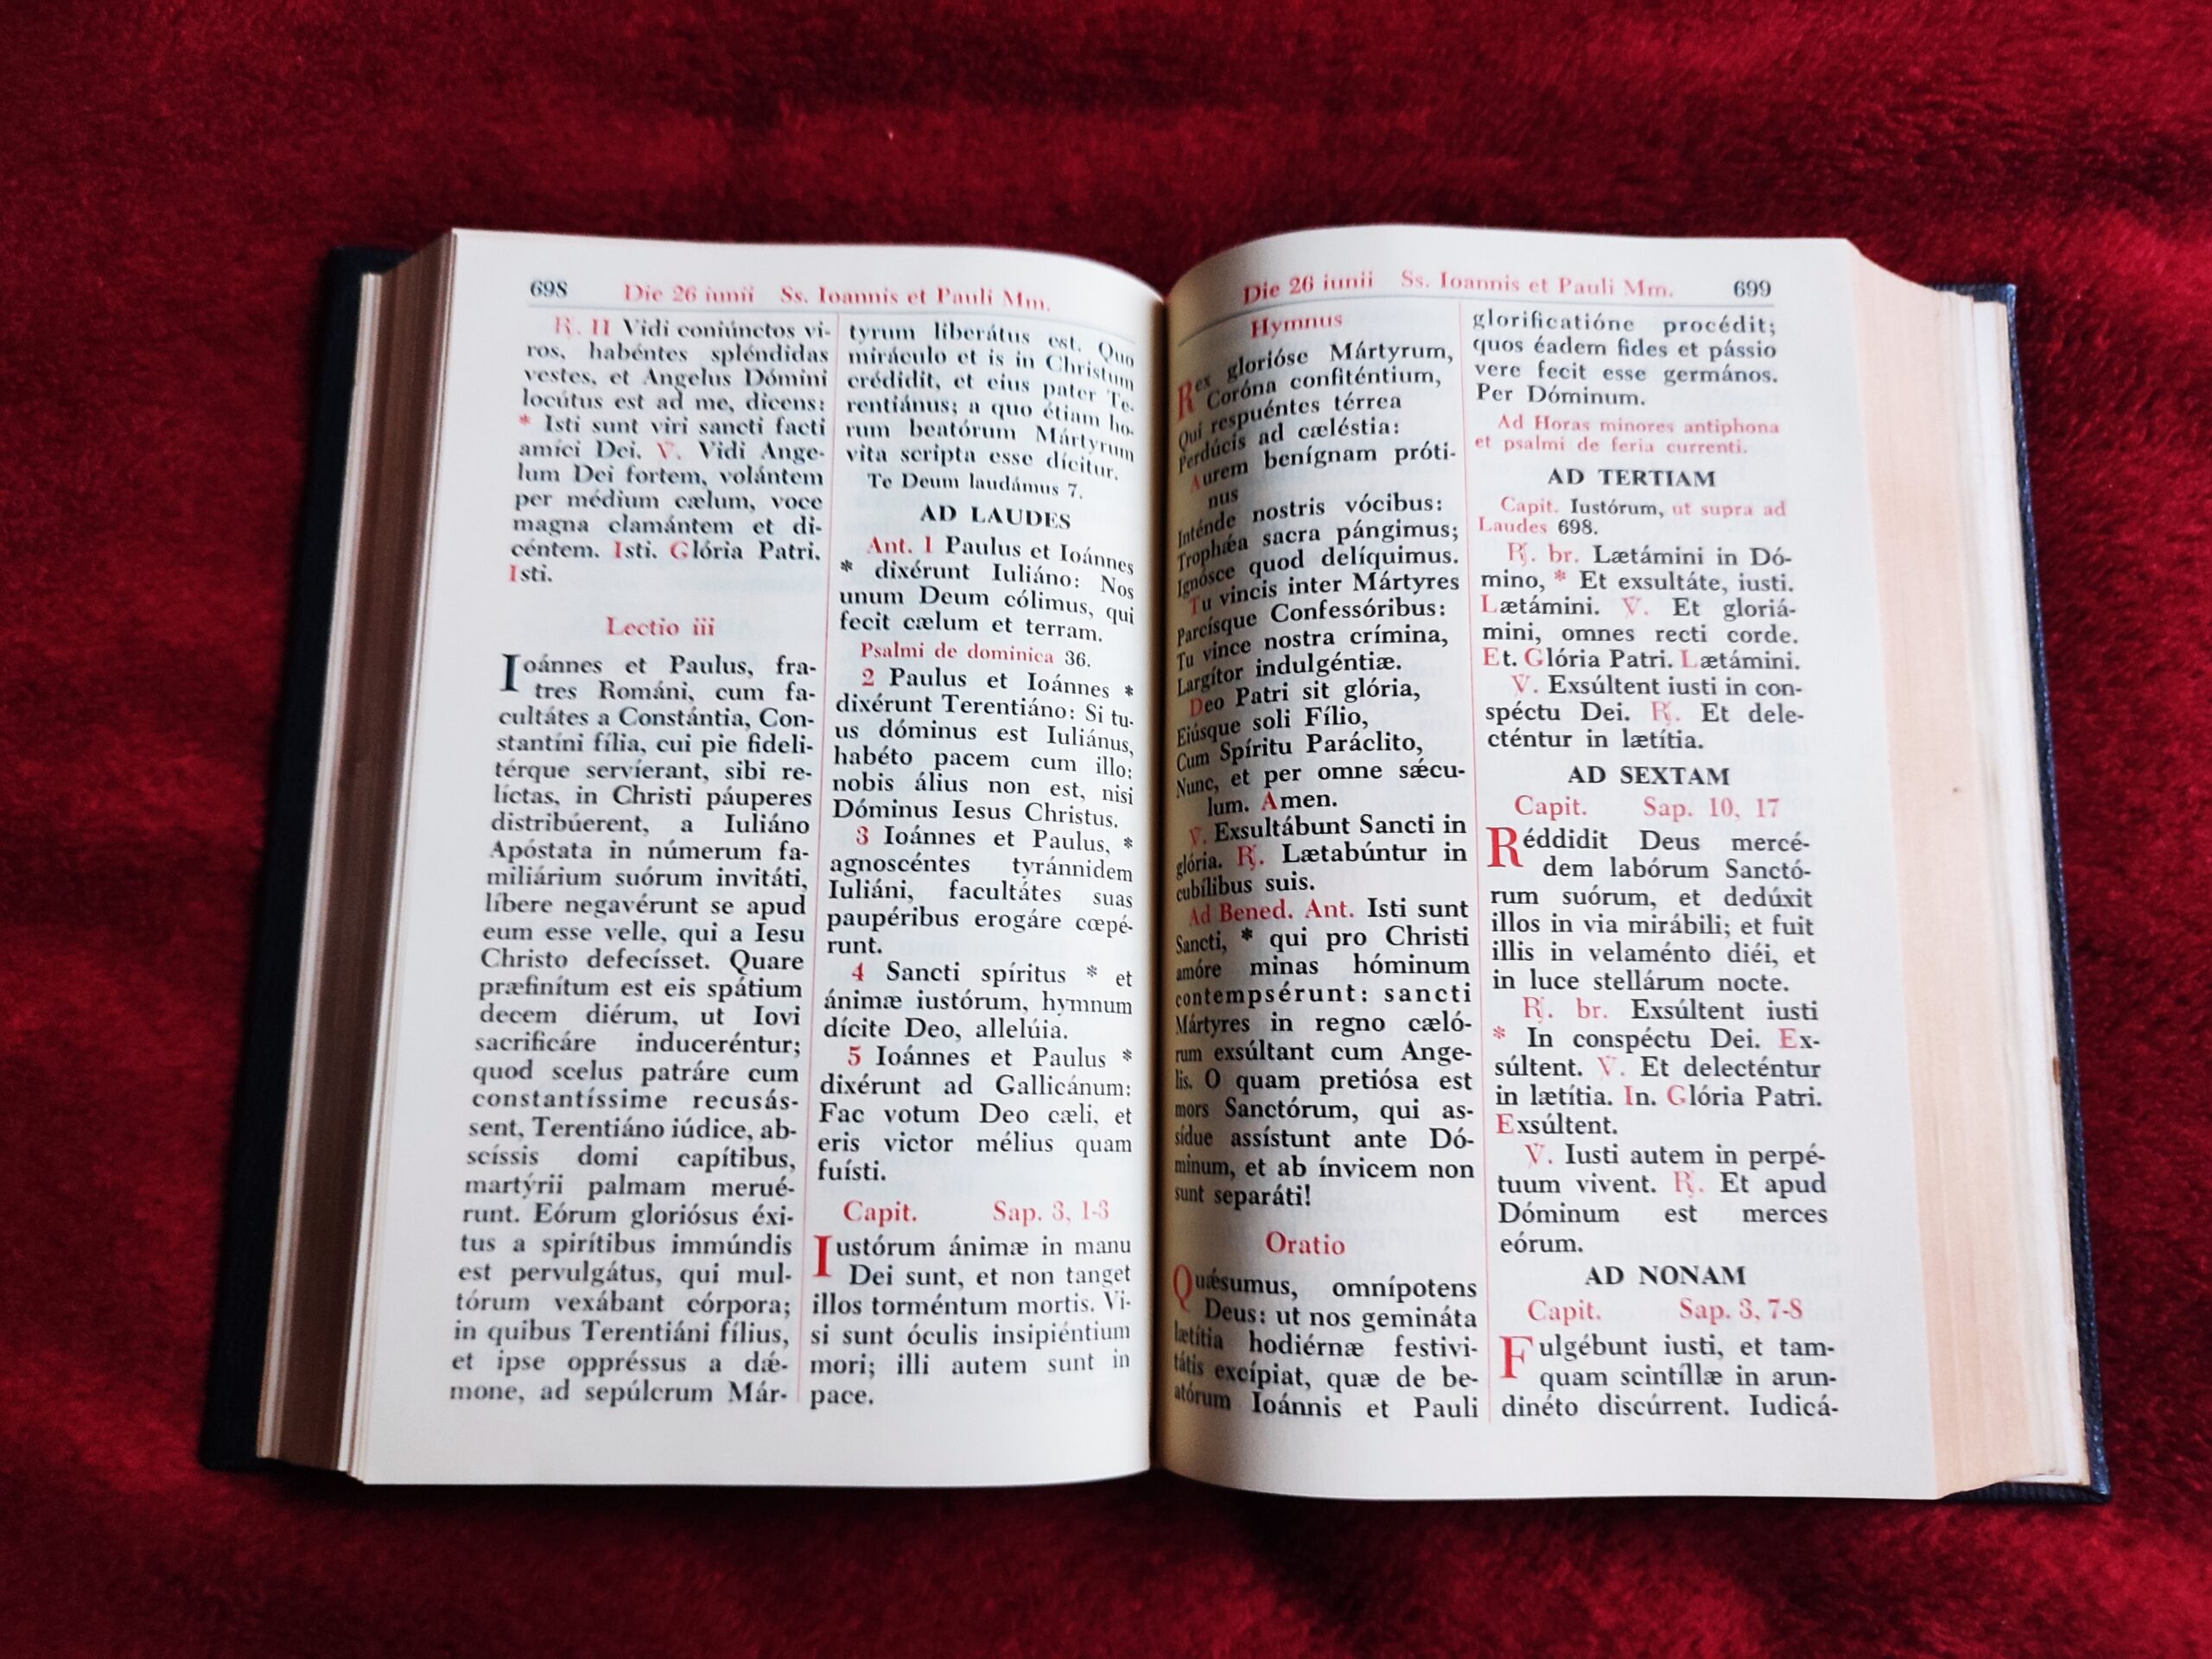 698 Die 26 iunii Ss. Ioannis et Pauli Mm.
℟. II Vidi coniúnctos vi-
ros, habéntes spléndidas
vestes, et Angelus Dómini
locútus est ad me, dicens:
* Isti sunt viri sancti facti
amíci Dei. ℣. Vidi Ange-
lum Dei fortem, volántem
per médium cælum, voce
magna clamántem et di-
céntem. Isti. Glória Patri.
Isti.
Lectio iii
Ioánnes et Paulus, fra-
tres Románi, cum fa-
cultátes a Constántia, Con-
stantíni fília, cui pie fideli-
térque servíerant, sibi re-
líctas, in Christi páuperes
distribúerent, a Iuliáno
Apóstata in númerum fa-
miliárium suórum invitáti,
líbere negavérunt se apud
eum esse velle, qui a Iesu
Christo defecísset. Quare
præfinítum est eis spátium
decem diérum, ut Iovi
sacrificáre induceréntur;
quod scelus patráre cum
constantíssime recusás-
sent, Terentiáno iúdice, ab-
scíssis domi capítibus,
martýrii palmam merué-
runt. Eórum gloriósus éxi-
tus a spirítibus immúndis
est pervulgátus, qui mul-
tórum vexábant córpora;
in quibus Terentiáni fílius,
et ipse oppréssus a dǽ-
mone, ad sepúlcrum Már-
tyrum liberátus est. Quo
miráculo et is in Christum
crédidit, et eius pater Te-
rentiánus; a quo étiam ho-
rum beatórum Mártyrum
vita scripta esse dícitur.
Te Deum laudámus 7.
AD LAUDES
Ant. 1 Paulus et Ioánnes
* dixérunt Iuliáno: Nos
unum Deum cólimus, qui
fecit cælum et terram.
Psalmi de dominica 36.
2 Paulus et Ioánnes *
dixérunt Terentiáno: Si tu-
us dóminus est Iuliánus,
habéto pacem cum illo:
nobis álius non est, nisi
Dóminus Iesus Christus.
3 Ioánnes et Paulus, *
agnoscéntes tyránnidem
Iuliáni, facultátes suas
paupéribus erogáre cœpé-
runt.
4 Sancti spíritus * et
ánimæ iustórum, hymnum
dícite Deo, allelúia.
5 Ioánnes et Paulus *
dixérunt ad Gallicánum:
Fac votum Deo cæli, et
eris victor mélius quam
fuísti.
Capit. Sap. 3, 1-3
Iustórum ánimæ in manu
Dei sunt, et non tanget
illos torméntum mortis. Vi-
si sunt óculis insipiéntium
mori; illi autem sunt in
pace.
Die 26 iunii Ss. Ioannis et Pauli Mm. 699
Hymnus
Rex glorióse Mártyrum,
Coróna confiténtium,
Qui respuéntes térrea
Perdúcis ad cæléstia:
Aurem benígnam próti-
nus
Inténde nostris vócibus:
Trophǽa sacra pángimus;
Ignósce quod delíquimus.
Tu vincis inter Mártyres
Parcísque Confessóribus:
Tu vince nostra crímina,
Largítor indulgéntiæ.
Deo Patri sit glória,
Eiúsque soli Fílio,
Cum Spíritu Paráclito,
Nunc, et per omne sǽcu-
lum. Amen.
℣. Exsultábunt Sancti in
glória. ℟. Lætabúntur in
cubílibus suis.
Ad Bened. Ant. Isti sunt
Sancti, * qui pro Christi
amóre minas hóminum
contempsérunt: sancti
Mártyres in regno cæló-
rum exsúltant cum Ange-
lis. O quam pretiósa est
mors Sanctórum, qui as-
sídue assístunt ante Dó-
minum, et ab ínvicem non
sunt separáti!
Oratio
Quǽsumus, omnípotens
Deus: ut nos gemináta
lætítia hodiérnæ festivi-
tátis excípiat, quæ de be-
atórum Ioánnis et Pauli
glorificatióne procédit;
quos éadem fides et pássio
vere fecit esse germános.
Per Dóminum.
Ad Horas minores antiphona
et psalmi de feria currenti.
AD TERTIAM
Capit. Iustórum, ut supra ad
Laudes 698.
℟. br. Lætámini in Dó-
mino, * Et exsultáte, iusti.
Lætámini. ℣. Et gloriá-
mini, omnes recti corde.
Et. Glória Patri. Lætámini.
℣. Exsúltent iusti in con-
spéctu Dei. ℟. Et dele-
cténtur in lætítia.
AD SEXTAM
Capit. Sap. 10, 17
Réddidit Deus mercé-
dem labórum Sanctó-
rum suórum, et dedúxit
illos in via mirábili; et fuit
illis in velaménto diéi, et
in luce stellárum nocte.
℟. br. Exsúltent iusti
* In conspéctu Dei. Ex-
súltent. ℣. Et delecténtur
in lætítia. In. Glória Patri.
Exsúltent.
℣. Iusti autem in perpé-
tuum vivent. ℟. Et apud
Dóminum est merces
eórum.
AD NONAM
Capit. Sap. 3, 7-8
Fulgébunt iusti, et tam-
quam scintíllæ in arun-
dinéto discúrrent. Iudicá-